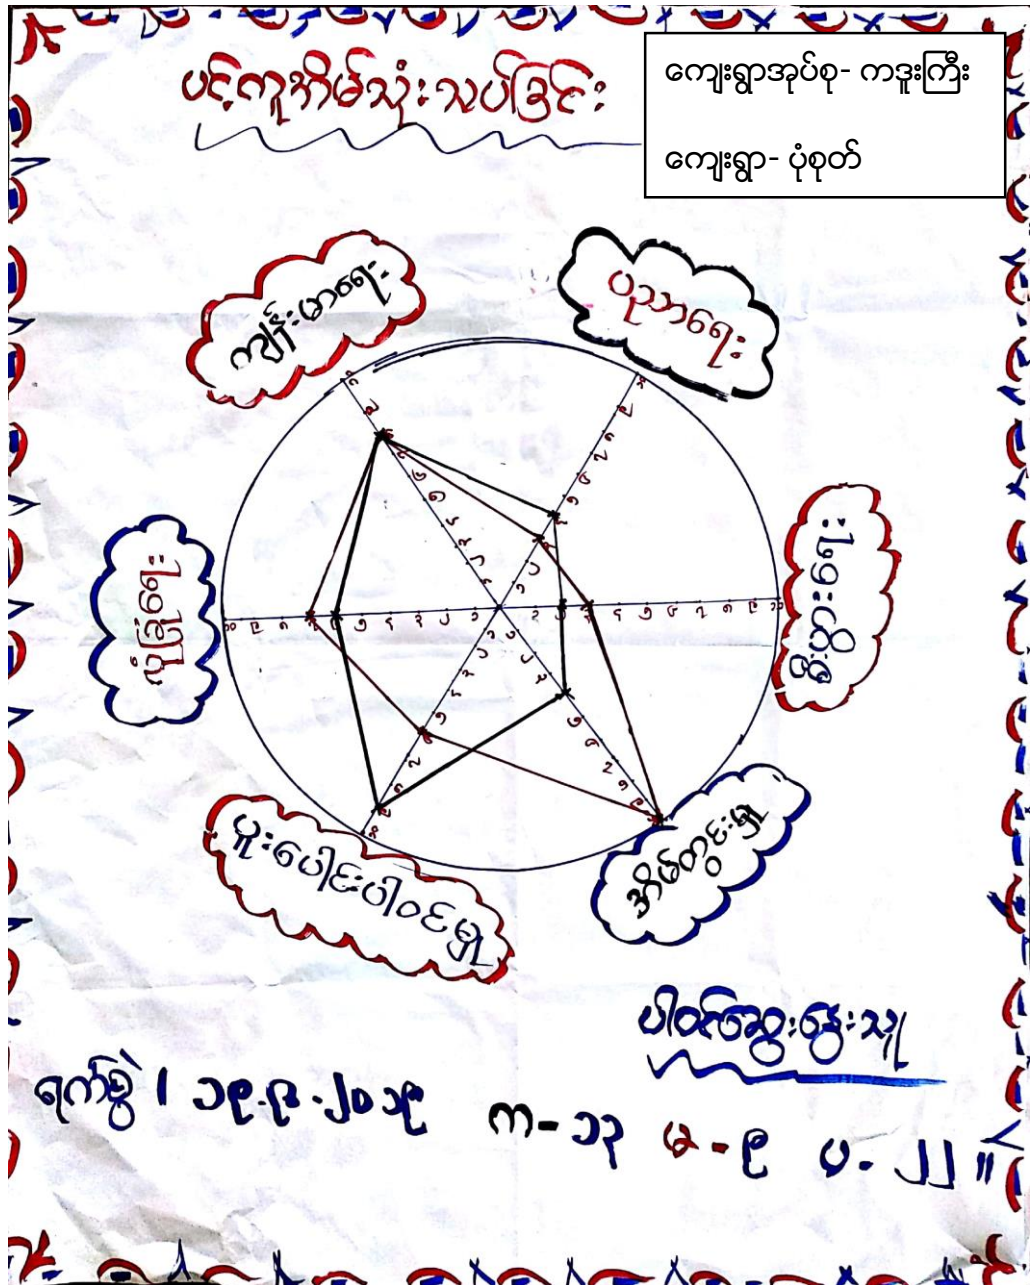 ပင့်ကူအိမ်သုံးသပ်ခြင်း
ကျေးရွာအုပ်စု- ကဒူးကြီး
ကျေးရွာ- ပုံစုတ်
ကျန်းမာရေး
ပညာရေး
စီးပွားရေး
လုံခြုံရေး
ပူးပေါင်းပါဝင်မှု
အိမ်တွင်းမှု
ပါဝင်ဆွေးနွေးသူ
ရက်စွဲ ၊ ၁၉.၉.၂၀၁၉
က- ၁၃ မ - ၉ ပ - ၂၂ ။